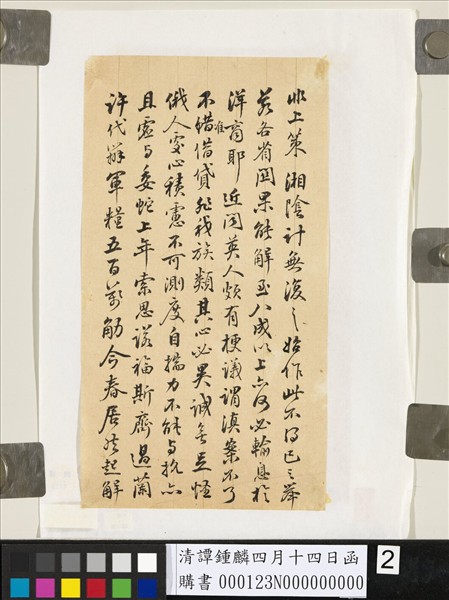 非上策湘陰計無復之始作此不得已之舉
若各省関果能解至八成以上亦何必輪息於
洋商耶近聞英人頗有梗議謂滇案不了
不准借貸非我族類其心必異誠無足怪
俄人處心積慮不可測度自揣力不能與抗亦
且虛与委蛇上年索思諾福斯齊過蘭
許代辦軍糧五百萬觔今春居然起解
清譚鍾麟四月十四日函
購書 000123N000000000
2